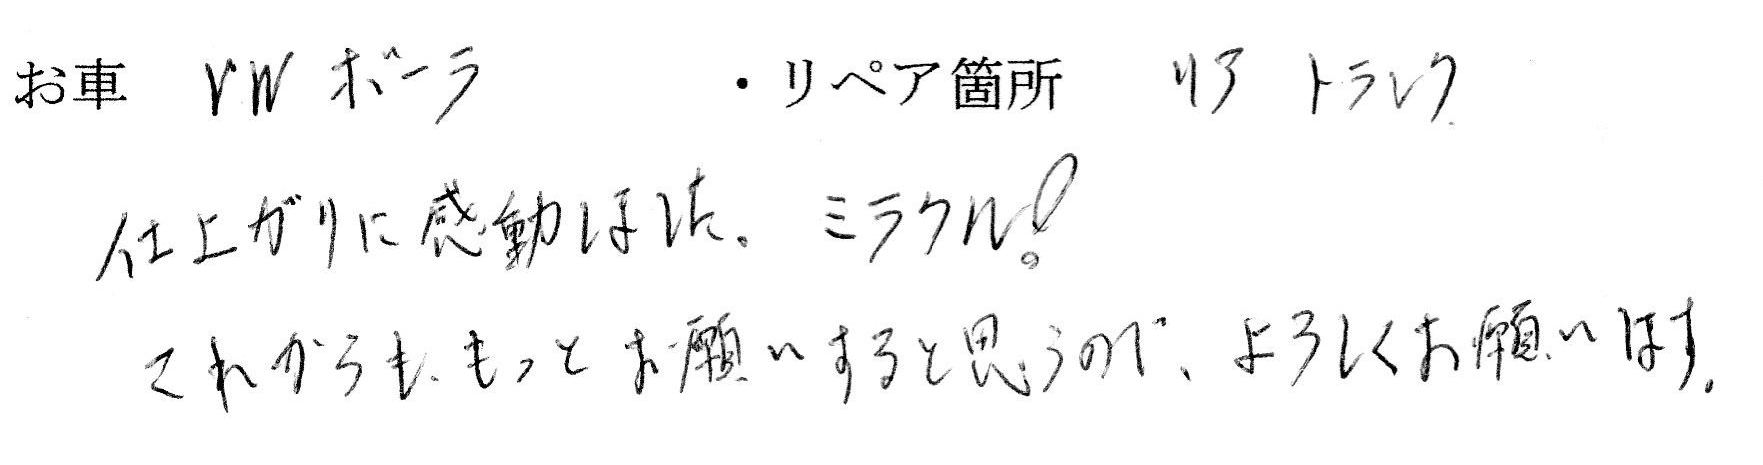 お車 VW ボーラ ・リペア箇所 リア トランク
仕上がりに感動しました。ミラクル!
これからも、もっとお願いすると思うので、よろしくお願いします。